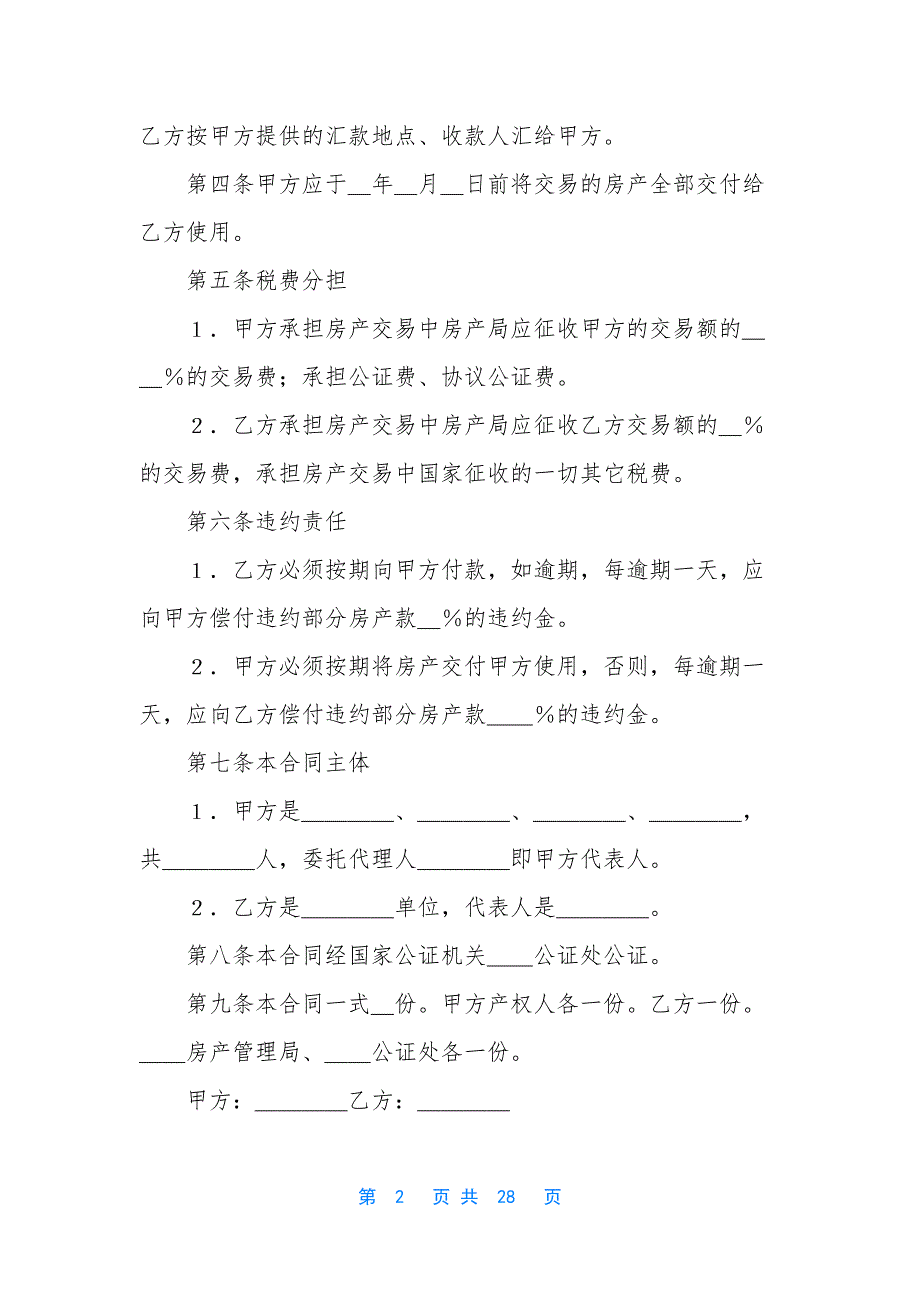 乙方按甲方提供的汇款地点、收款人汇给甲方。
第四条甲方应于__年__月__日前将交易的房产全部交付给
乙方使用。
第五条税费分担
１．甲方承担房产交易中房产局应征收甲方的交易额的__
__％的交易费；承担公证费、协议公证费。
２．乙方承担房产交易中房产局应征收乙方交易额的__％
的交易费，承担房产交易中国家征收的一切其它税费。
第六条违约责任
１．乙方必须按期向甲方付款，如逾期，每逾期一天，应
向甲方偿付违约部分房产款__％的违约金。
２．甲方必须按期将房产交付甲方使用，否则，每逾期一
天，应向乙方偿付违约部分房产款____％的违约金。
第七条本合同主体
１．甲方是________、________、________、________，
共________人，委托代理人________即甲方代表人。
２．乙方是________单位，代表人是________。
第八条本合同经国家公证机关____公证处公证。
第九条本合同一式__份。甲方产权人各一份。乙方一份。
____房产管理局、____公证处各一份。
甲方：________乙方：________
第 2 页 共 28 页